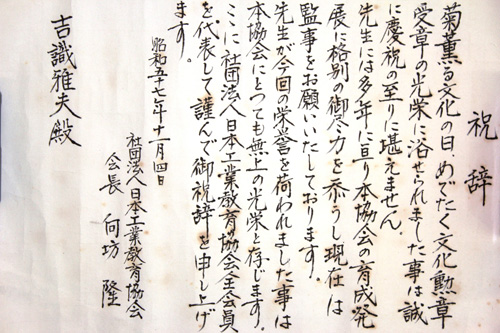 祝辞
菊薫る文化の日、めでたく文化勲章
受章の光栄に浴せられました事は誠
に慶祝の至りに堪えません。
先生には多年に亘り本協会の育成発
展に格別の御尽力を忝うし現在は
監事をお願いいたしております。
先生が今回の栄誉を荷われました事は
本協会にとつても無上の光栄と存じます。
ここに社団法人日本工業教育協会全会員
を代表して謹んで御祝辞を申し上げ
ます。
昭和五十七年十一月四日
社団法人日本工業教育協会
会長 向坊 隆
吉識雅夫殿